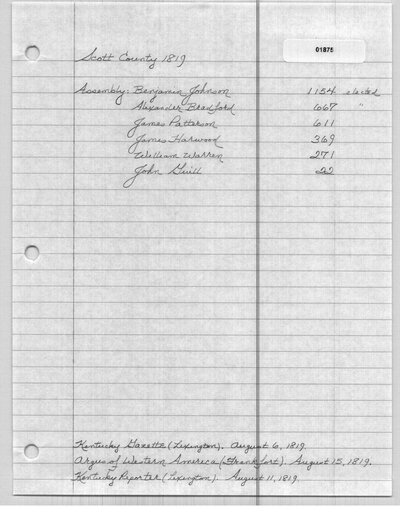 01875
Scott County 1819
Assembly: Benjamin Johnson 1154 elected
Alexander Bradford 667 "
James Patterson 611
James Harwood 369
William Warren 271
John Guill 22
Kentucky Gazette (Lexington). August 6, 1819.
Argus of Western America (Frankfort). August 15, 1819.
Kentucky Reporter (Lexington). August 11, 1819.